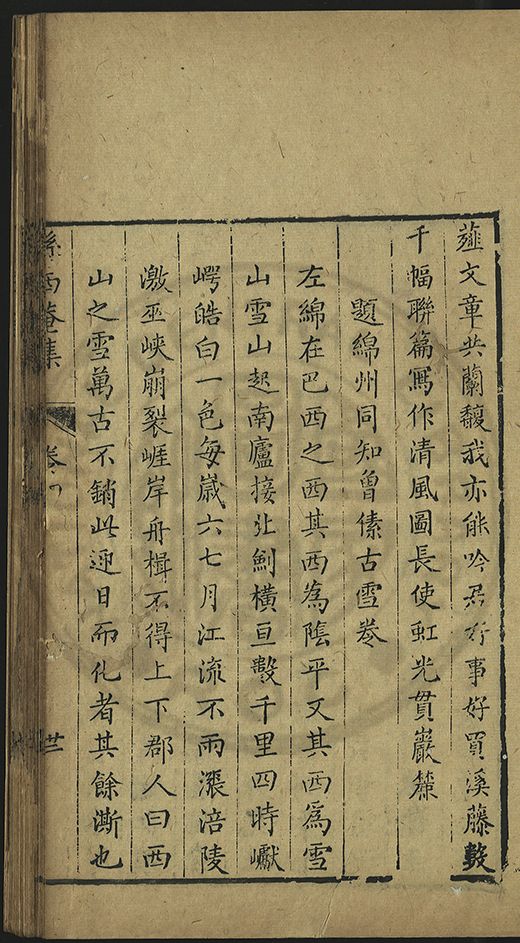 薤文章共蘭馥我亦能吟君好事好買溪藤數
千幅聯篇寫作清風圖長使虹光貫巖麓
題綿州同知曾傃古雪卷
左綿在巴西之西其西為陰平又其西為雪
山雪山起南廬接北劍橫亘數千里四時巘
崿皓白一色每歲六七月江流不雨漲涪陵
激巫峽崩裂崕岸舟楫不得上下郡人曰西
山之雪萬古不銷此迎日而化者其餘澌也
孫西菴集
卷
廿二